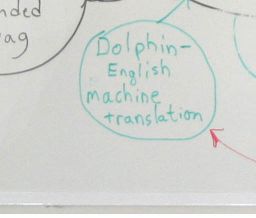 nded
ag
Dolphin-
English
machine
translation